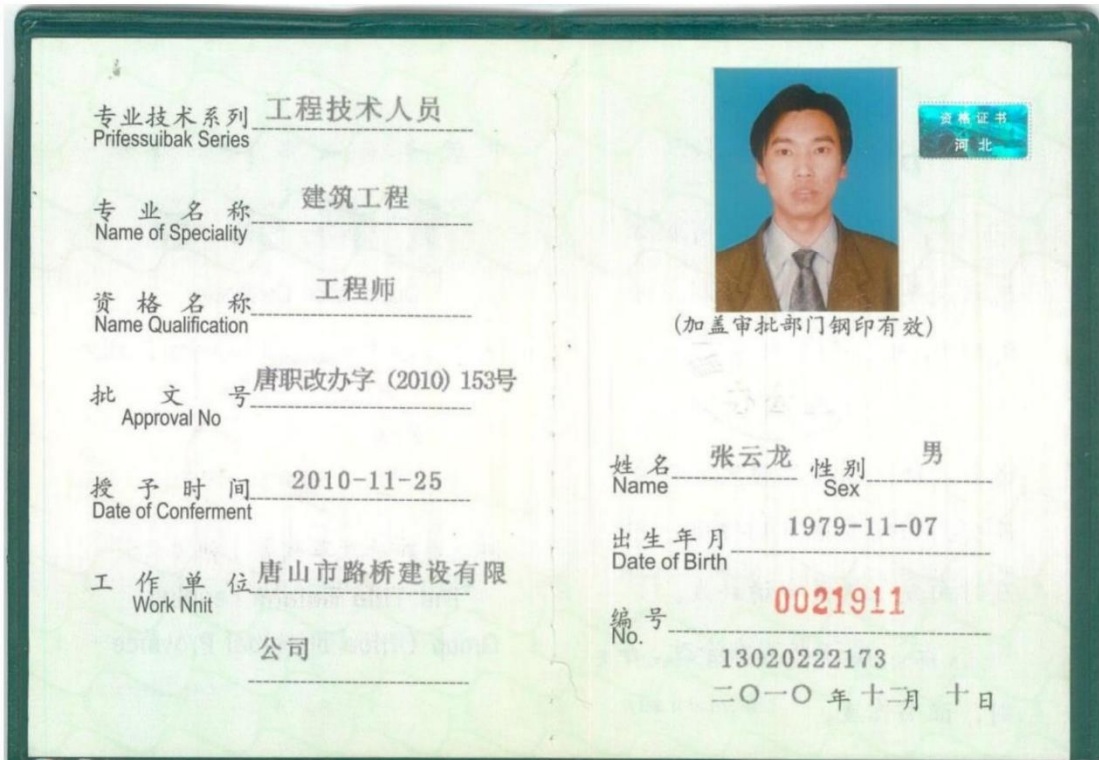 专业技术系列 工程技术人员
Prifessuibak Series
专业名称 建筑工程
Name of Speciality
资格名称 工程师
Name Qualification
批文号 唐职改办字（2010）153号
Approval No
授予时间 2010-11-25
Date of Conferment
工作单位 唐山市路桥建设有限
Work Nnit
公司
资格证书
河北
(加盖审批部门钢印有效)
姓名 张云龙 性别 男
Name Sex
出生年月 1979-11-07
Date of Birth
编号 0021911
No.
13020222173
二〇一〇年十二月十日